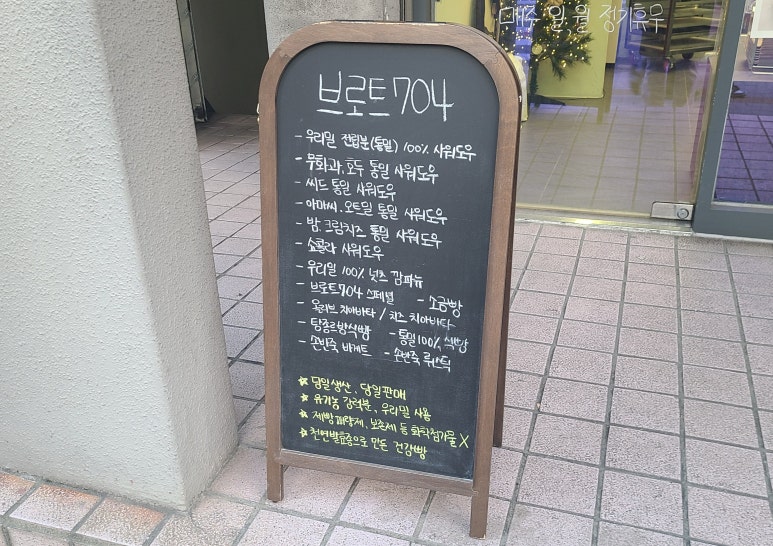 매주 일,월 정기휴무
브로트704
- 우리밀 전립분(통밀) 100% 사워도우
- 무화과,호두 통밀 사워도우
- 씨드 통밀 사워도우
- 아마씨.오트밀 통밀 사워도우
- 밤,크림치즈 통밀 사워도우
- 쇼콜라 사워도우
- 우리밀 100% 넛츠 깜파뉴
- 브로트704 슈톨렌 - 소금빵
- 올리브 치아바타 / 치즈 치아바타
- 탕종르방식빵 - 통밀100% 식빵
- 손반죽 바게트 - 손반죽 루스틱
★ 당일생산, 당일판매
★ 유기농 강력분, 우리밀 사용
★ 제빵개량제, 보존제 등 화학첨가물 X
★ 천연발효종으로 만든 건강빵